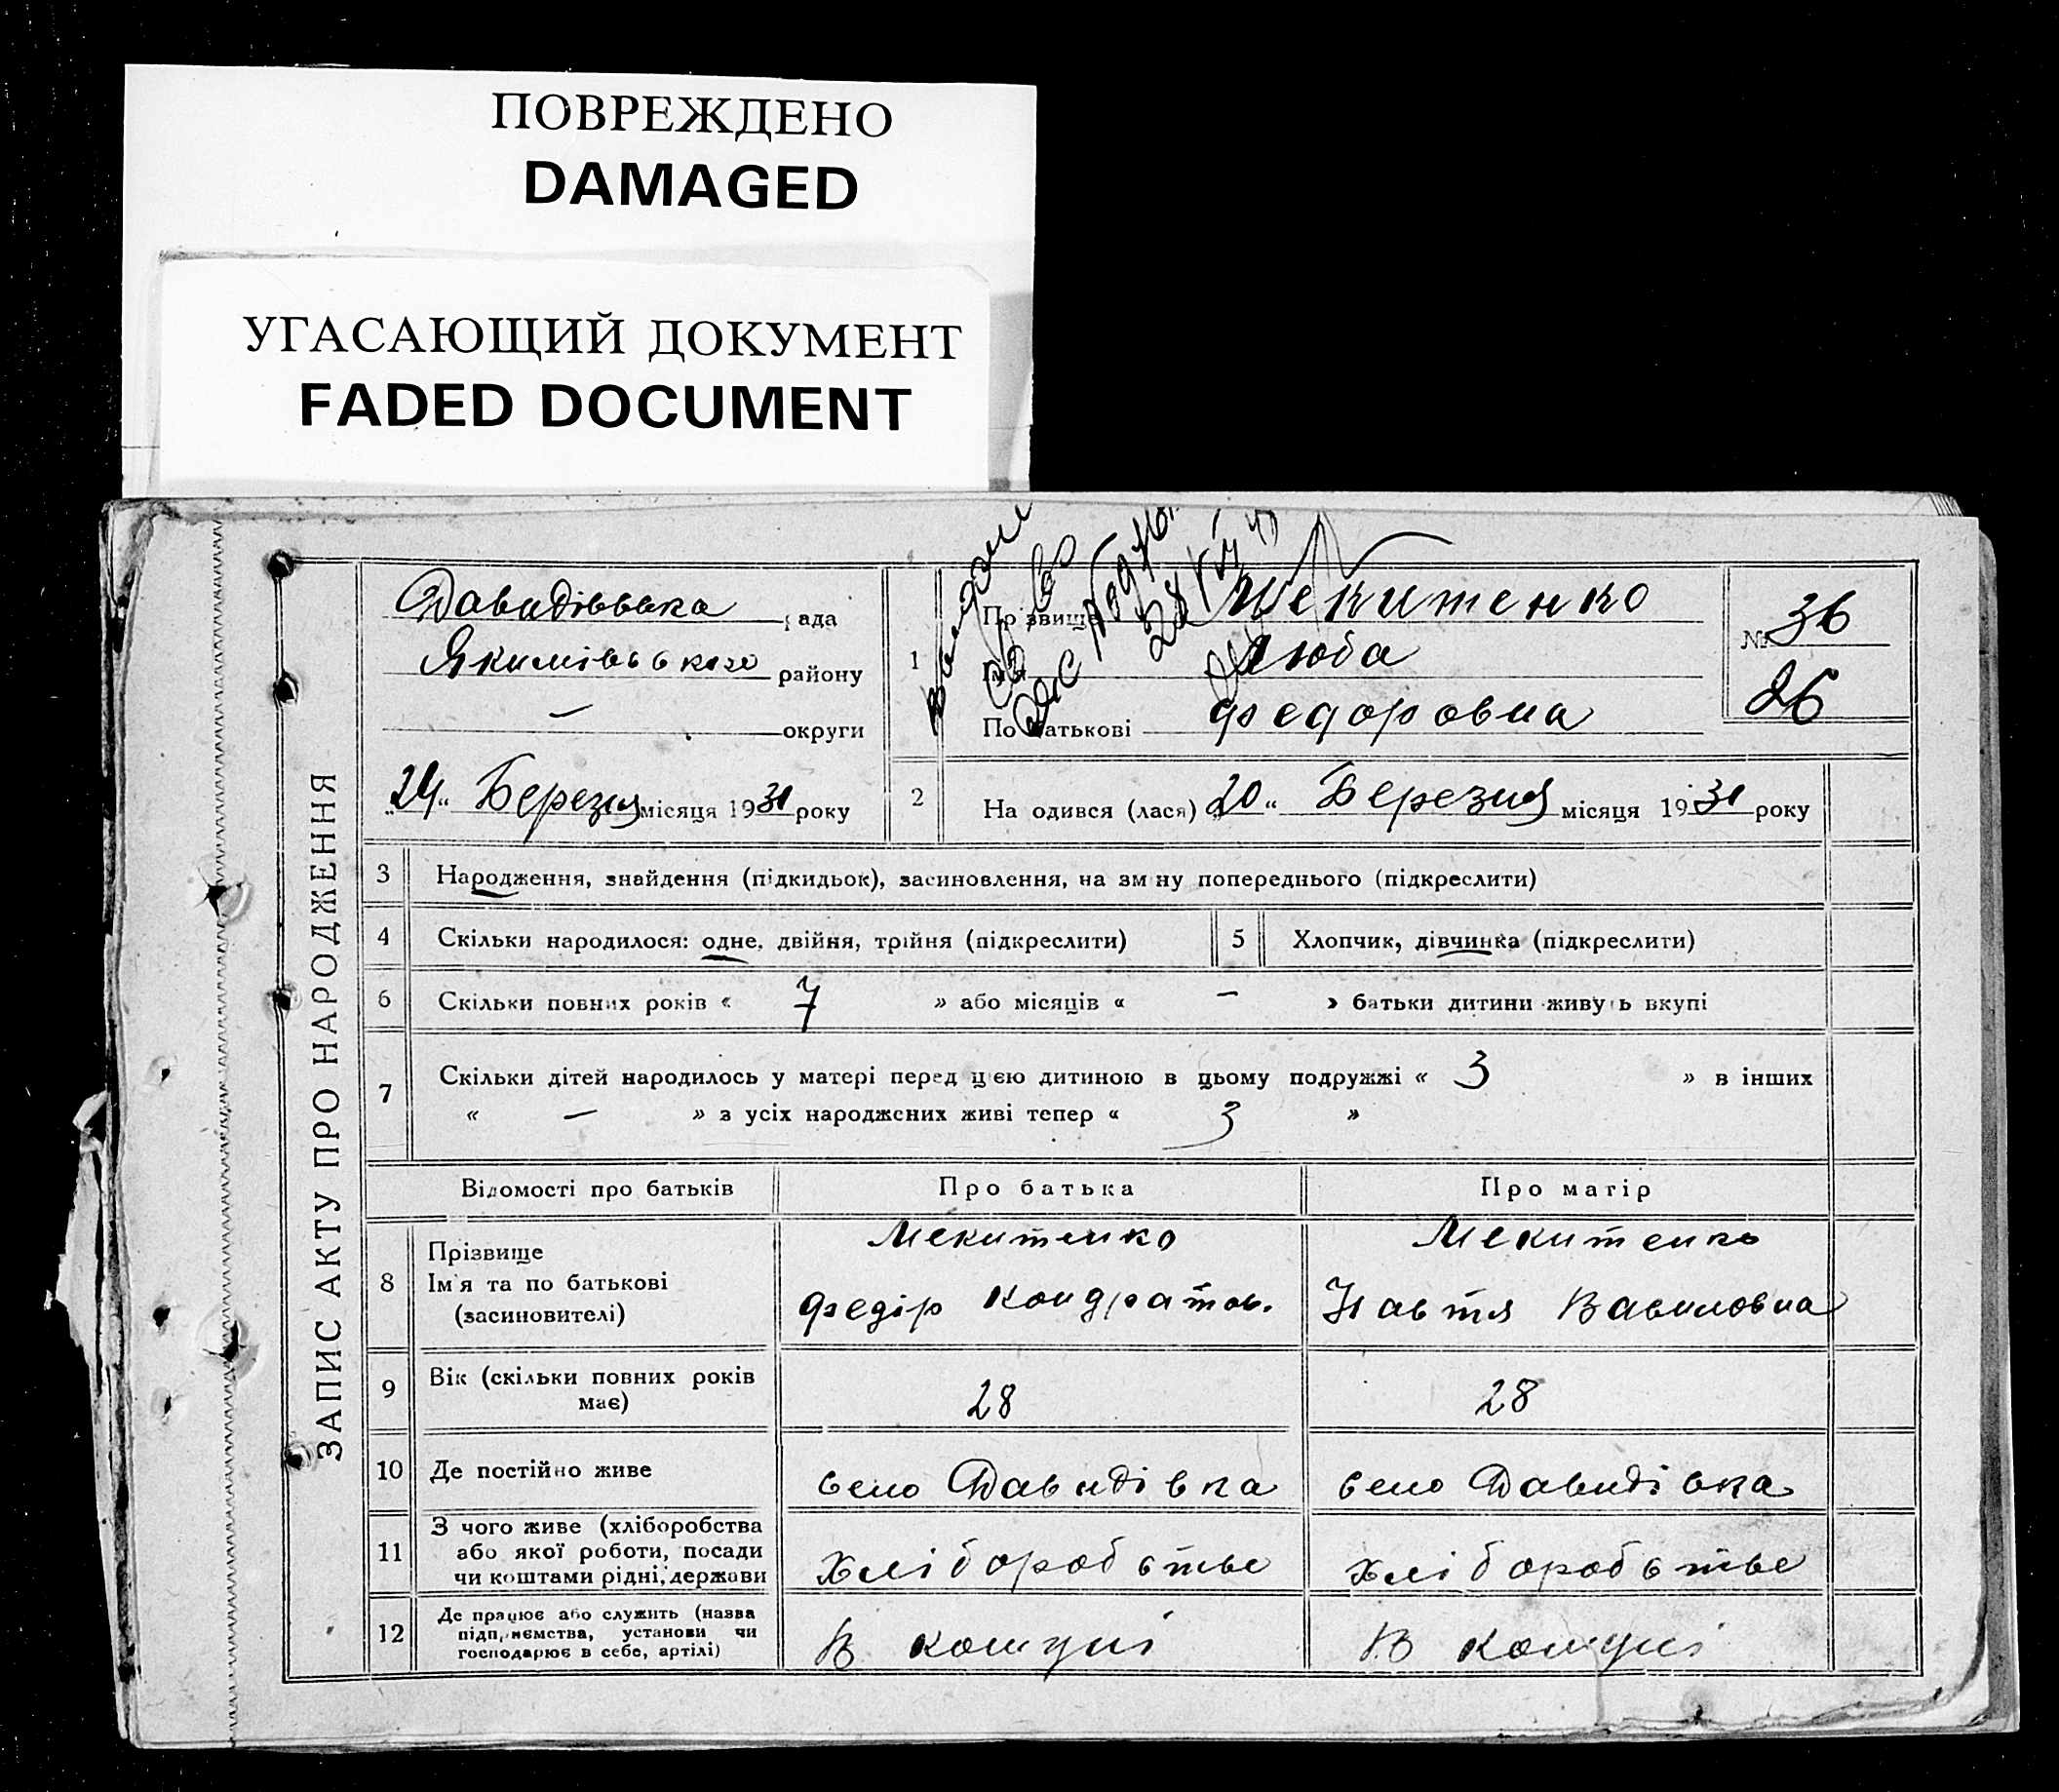 ПОВРЕЖДЕНО
DAMAGED
УГАСАЮЩИЙ ДОКУМЕНТ
FADED DOCUMENT
ЗАПИС АКТУ ПРО НАРОДЖЕННЯ
Давидівська рада
Якимівського району
— округи
„24“ Березня місяця 1931 року
1
Прізвище Мекитенко
Ім'я Люба
По батькові Федоровна
№ 36
26
2 На одився (лася) „20“ Березня місяця 1931 року
3 Народження, знайдення (підкидьок), засиновлення, на зміну попереднього (підкреслити)
4 Скільки народилося: одне, двійня, трійня (підкреслити)
5 Хлопчик, дівчинка (підкреслити)
6 Скільки повних років « 7 » або місяців « — » батьки дитини живуть вкупі
7 Скільки дітей народилось у матері перед цією дитиною в цьому подружжі « 3 » в інших
« — » з усіх народжених живі тепер « 3 »
Відомості про батьків Про батька Про матір
8 Прізвище Мекитенко Мекитенко
Ім'я та по батькові Федір Кондратов. Настя Вавиловна
(засиновителі)
9 Вік (скільки повних років має) 28 28
10 Де постійно живе село Давидівка село Давидівка
11 З чого живе (хліборобства
або якої роботи, посади хліборобство хліборобство
чи коштами рідні, держави
12 Де працює або служить (назва
підприємства, установи чи В комуні В комуні
господарює в себе, артілі)